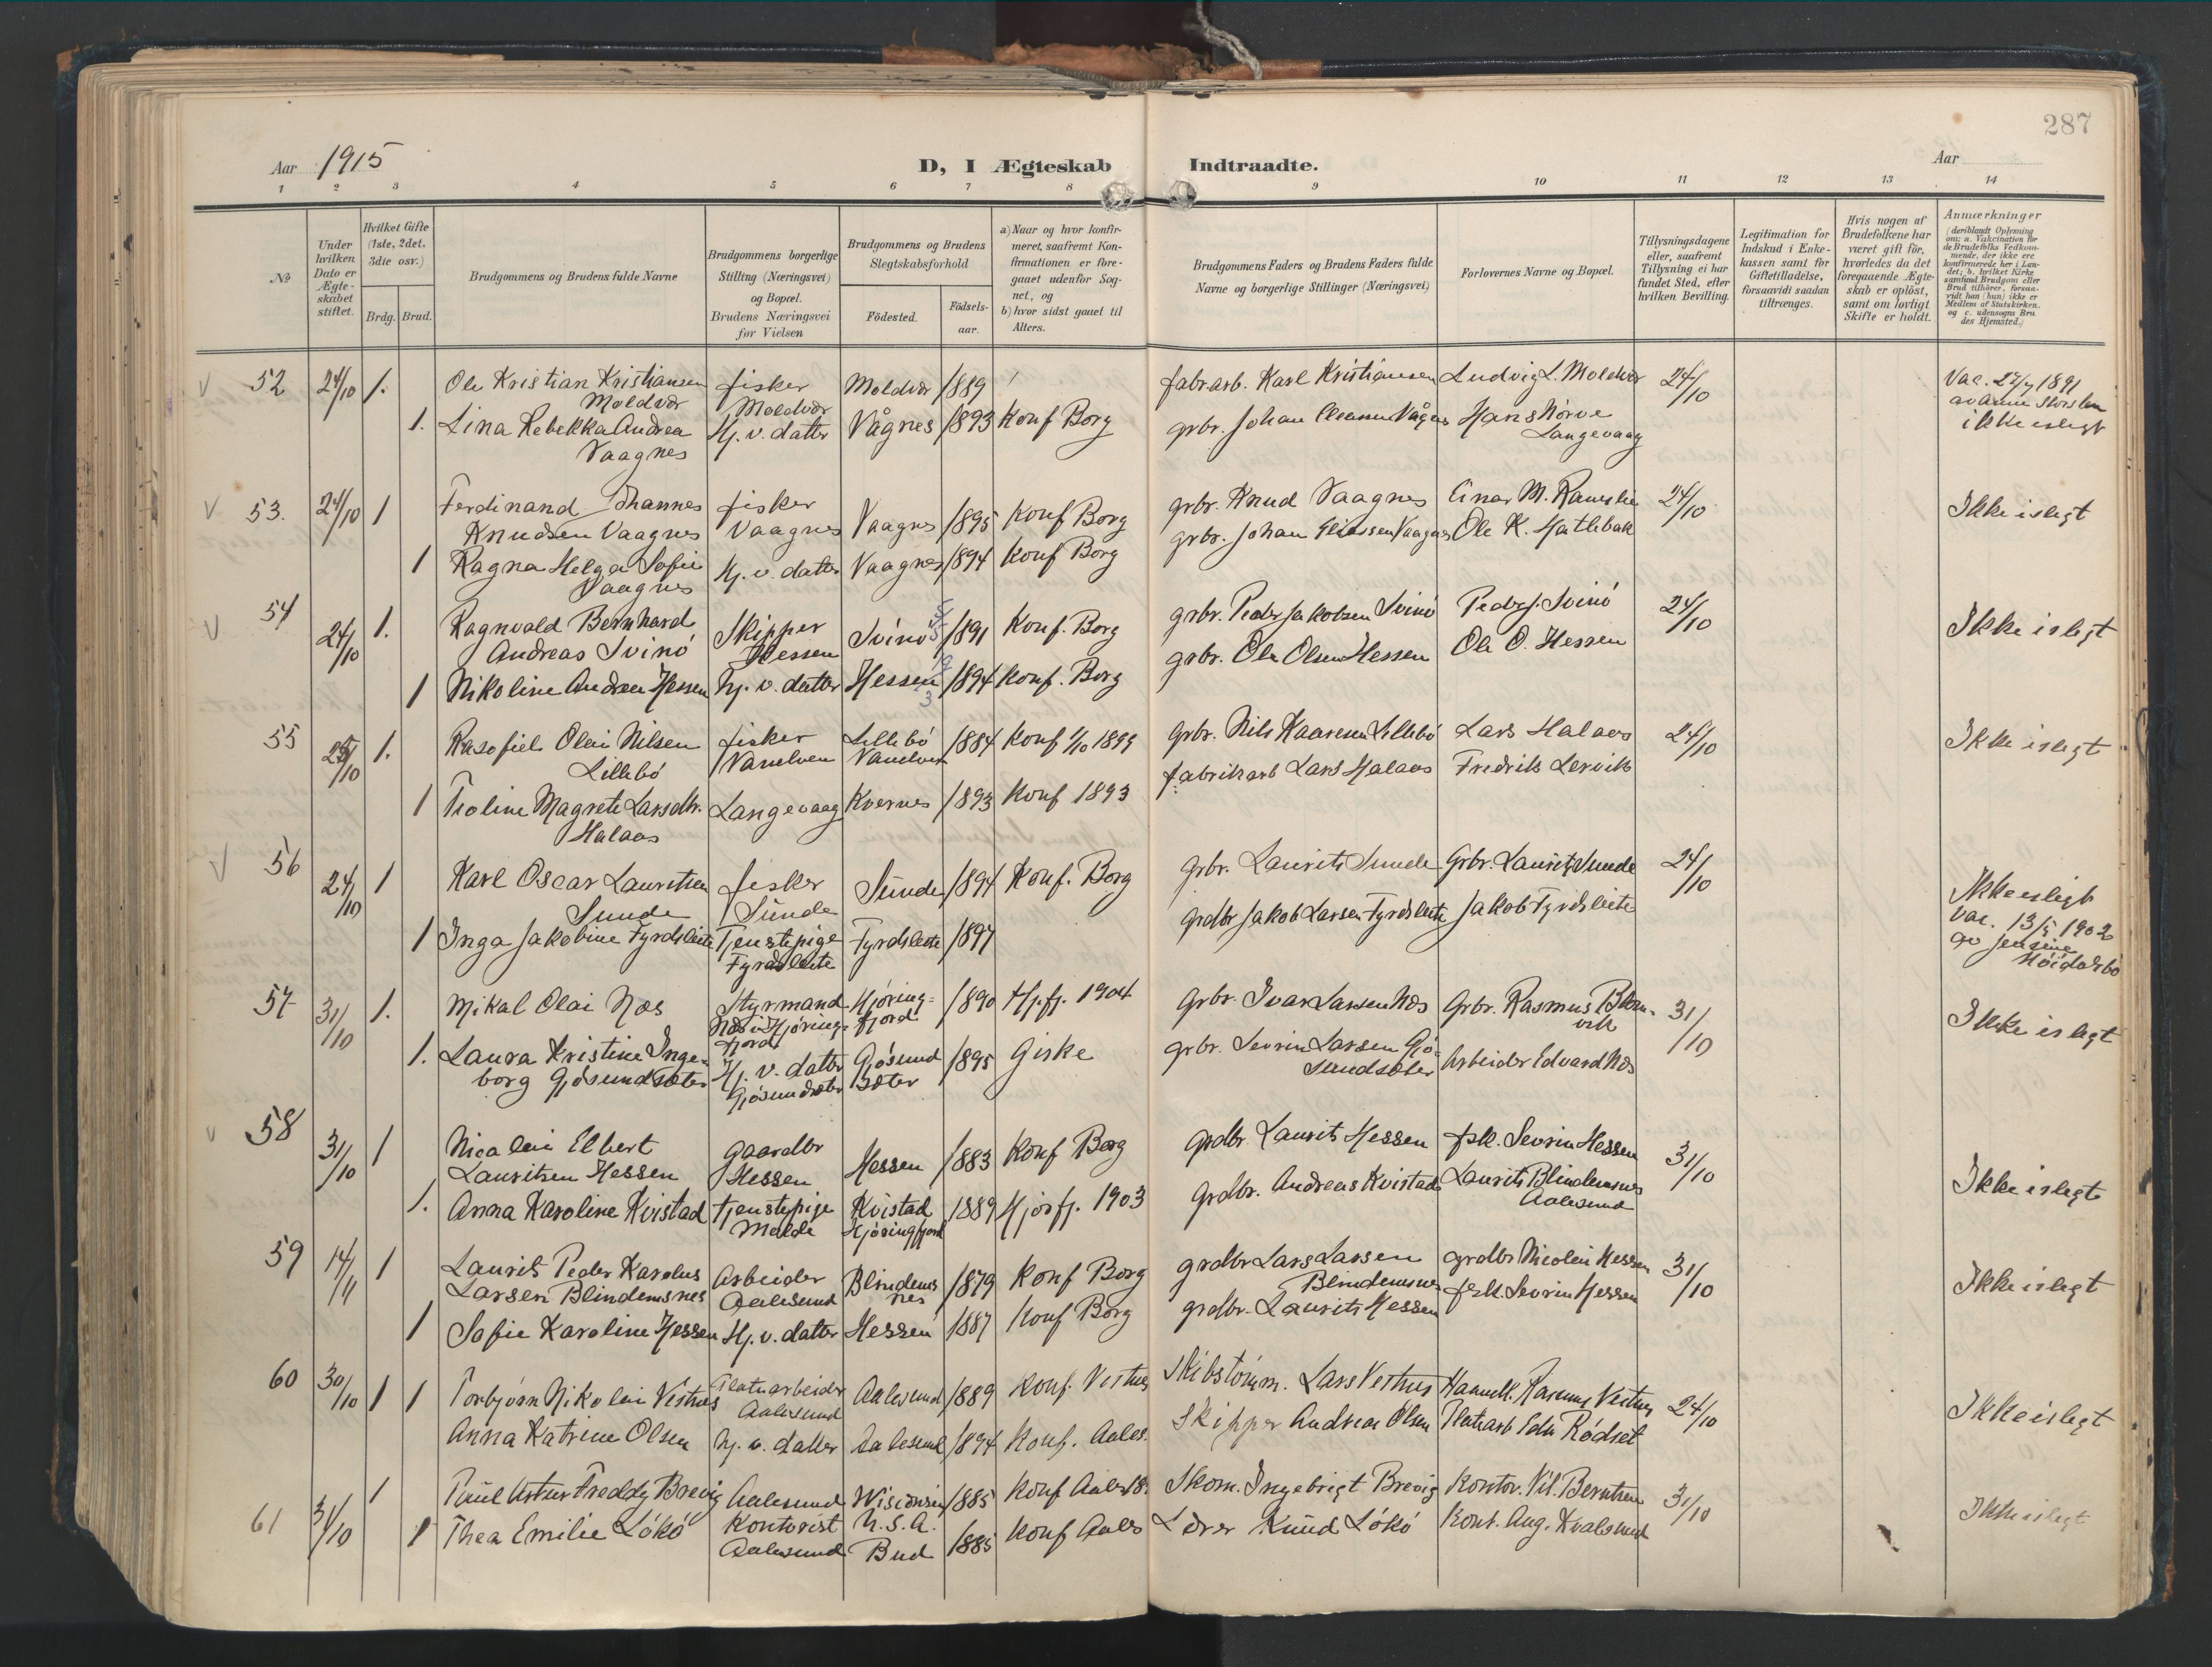 287
Aar 1915
D, I Ægteskab Indtraadte.
Aar
1 2 3 4 5 6 7 8 9 10 11 12 13 14
No
Under hvilken Dato er Ægte-skabet stiftet.
Hvilket Gifte (1ste, 2det, 3die osv.)
Brdg. Brud.
Brudgommens og Brudens fulde Navne
Brudgommens borgerlige Stilling (Næringsvei) og Bopæl. Brudens Næringsvei før Vielsen
Brudgommens og Brudens Slegtskabsforhold
Fødested.
Fødsels-aar.
a) Naar og hvor konfir-meret, saafremt Kon-firmationen er fore-gaaet udenfor Sog-net, og
b) hvor sidst gaaet til Alters.
Brudgommens Faders og Brudens Faders fulde Navne og borgerlige Stillinger (Næringsvei)
Forlovernes Navne og Bopæl.
Tillysningsdagene eller, saafremt Tillysning ei har fundet Sted, efter hvilken Bevilling.
Legitimation for Indskud i Enke-kassen samt for Giftetilladelse, forsaavidt saadan tiltrænges.
Hvis nogen af Brudefolkene har været gift før, hvorledes da det foregaaende Ægte-skab er opløst, samt om lovligt Skifte er holdt.
Anmærkninger
(deriblandt Oplysning om: a. Vakcination for de Brudefolks Vedkom-mende, der ikke ere konfirmerede her i Lan-det; b. hvilket Kirke-samfund Brudgom eller Brud tilhører, forsaa-vidt han (hun) ikke er Medlem af Statskirken. og c. udensogns Bru-des Hjemsted.)
52 24/10 1. Ole Kristian Kristiansen fisker Moldvær 1889 fabr.arb. Karl Kristiansen Ludvig L. Moldvær 24/10 Vac. 1891
Moldvær Moldvær
1. Lina Rebekka Andrea Hj. v. datter Vågnes 1893 Konf Borg grbr. Johan Hans Nørve ikke islegt
Vaagnes Langevaag
53. 24/10 1 Ferdinand Johannes fisker grbr. Knud Vaagnes Einar M. 24/10 Ikke islegt
Knudsen Vaagnes Vaagnes Vaagnes 1895 Konf Borg grbr. Johan Vaagnes Ole K. Hatlebak
1 Ragna Helga Sofie Hj. v. datter Vaagnes 1894 Konf Borg
Vaagnes
54 24/10 1. Ragnvald Bernhard Skipper Svinö 1891 Konf. Borg grbr. Peder Jakobsen Svinö Peder J. Svinö 24/10 Ikke islegt
Andreas Svinö Hessen grbr. Ole Olsen Hessen Ole O. Hessen
1 Nikoline Andrea Hessen hj. v. datter Hessen 1894 Konf. Borg
55 25/10 1. Rasofiel Olai Nilsen fisker Lillebö 1884 Konf 1/10 1899 Grbr. Nils Lillebö Lars Halaas 24/10 Ikke islegt
Lillebö Vanelven Vanelven fabriksarb Lars Halaas Fredrik Lervik
1 Tioline Magrete Larsdtr. Langevaag Kvernes 1893 Konf 1893
Halaas
56 24/10 1 Karl Oscar Lauritsen fisker Sunde 1894 Konf. Borg grbr. Laurits Sunde Grbr. Laurits Sunde 24/10 Ikke islegt
Sunde Sunde
1 Inga Jakobine Fyrdsleite Tjenstepige Fyrdsleite 1897 grdbr Jakob Larsen Fyrdsleite Jakob Fyrdsleite Vac. 13/5 1902
Fyrdsleite av Jensine
57 31/10 1. Mikal Olai Næs Styrmand Hjöring- 1890 Hj.fj. 1904 Grbr. Ivar Larsen Næs Grbr. Rasmus 31/10 Ikke islegt
Næs i Hjöring- fjord
fjord
1. Laura Kristine Inge- Hj. v. datter Gjösund 1895 Giske grbr. Sevrin Larsen Gjö- Arbeider Edvard Næs
borg Gjösundsæter Gjösundsæter sæter sundsæter
58 31/10 1 Nicolai Elbert gaardbr grdbr. Laurits Hessen fsk. Sevrin Hessen 31/10
Lauritsen Hessen Hessen Hessen 1883 Konf Borg
1. Anna Karoline Kvistad tjenstepige Kvistad 1889 Hjör fj. 1903 Grdbr. Andreas Kvistad Laurits Blindemsnes Ikke islegt
Molde Hjöringfjord Aalesund
59 14/11 1 Laurits Peder Karolus Arbeider Blindems 1879 Konf Borg grdbr Lars Larsen grdbr Nicolai Hessen 31/10 Ikke islegt
Larsen Blindemsnes Aalesund nes Blindemsnes fsk. Sevrin Hessen
1 Sofie Karoline Hessen Hj. v. datter Hessen 1887 Konf Borg grdbr. Laurits Hessen
60 30/10 1 1 Torbjörn Nikolai Vestnes Aalesund 1889 Konf. Vestnes Skibstömm. Lars Vestnes Rasmus Vestnes 24/10 Ikke islegt
Aalesund
Anna Katrine Olsen hj. v. datter Aalesund 1894 Konf. Aales. Skipper Andreas Olsen Rödset
61 31/10 1 Paul Astur Freddy Brevig Aalesund Wisconsin 1885 Konf Aales 18. Skom. Ingebrigt Brevig Kontor. Vil. Berntsen 31/10 Ikke islegt
Kontorist U.S.A.
1 Thea Emilie Lökö Aalesund Bud 1885 Konf Aales Lærer Knud Lökö Kont. Aug. Kvalsund